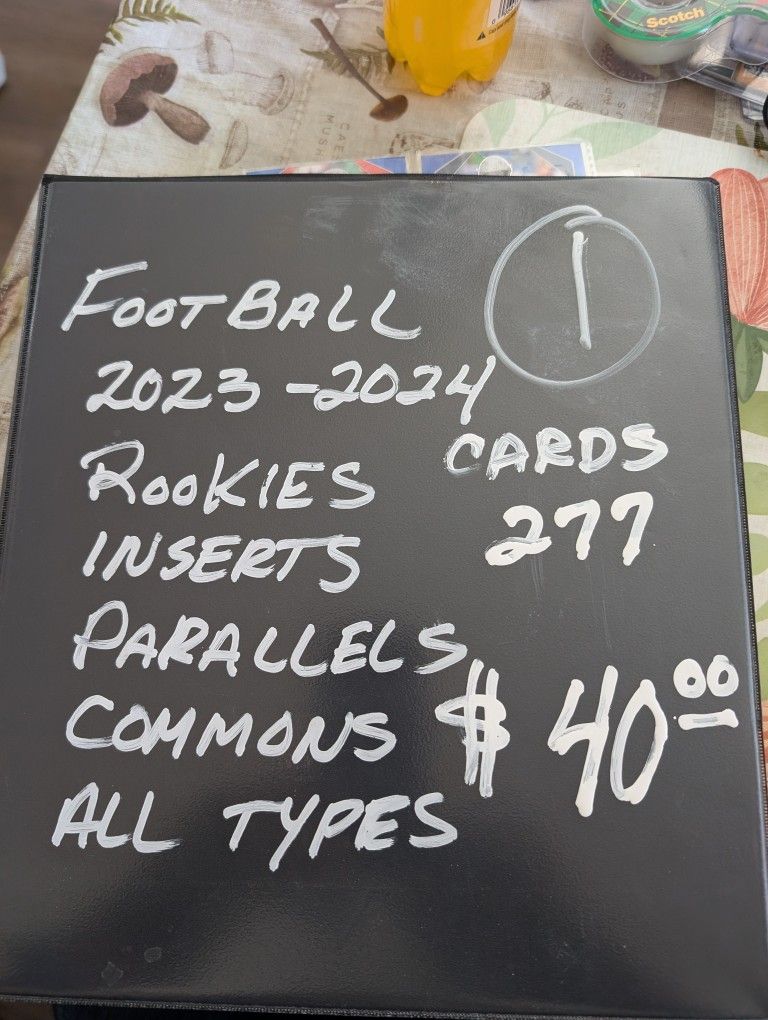 Scotch
1
FOOTBALL
2023-2024
ROOKIES
CARDS
INSERTS
277
PARALLELS
COMMONS
$ 40.00
ALL TYPES